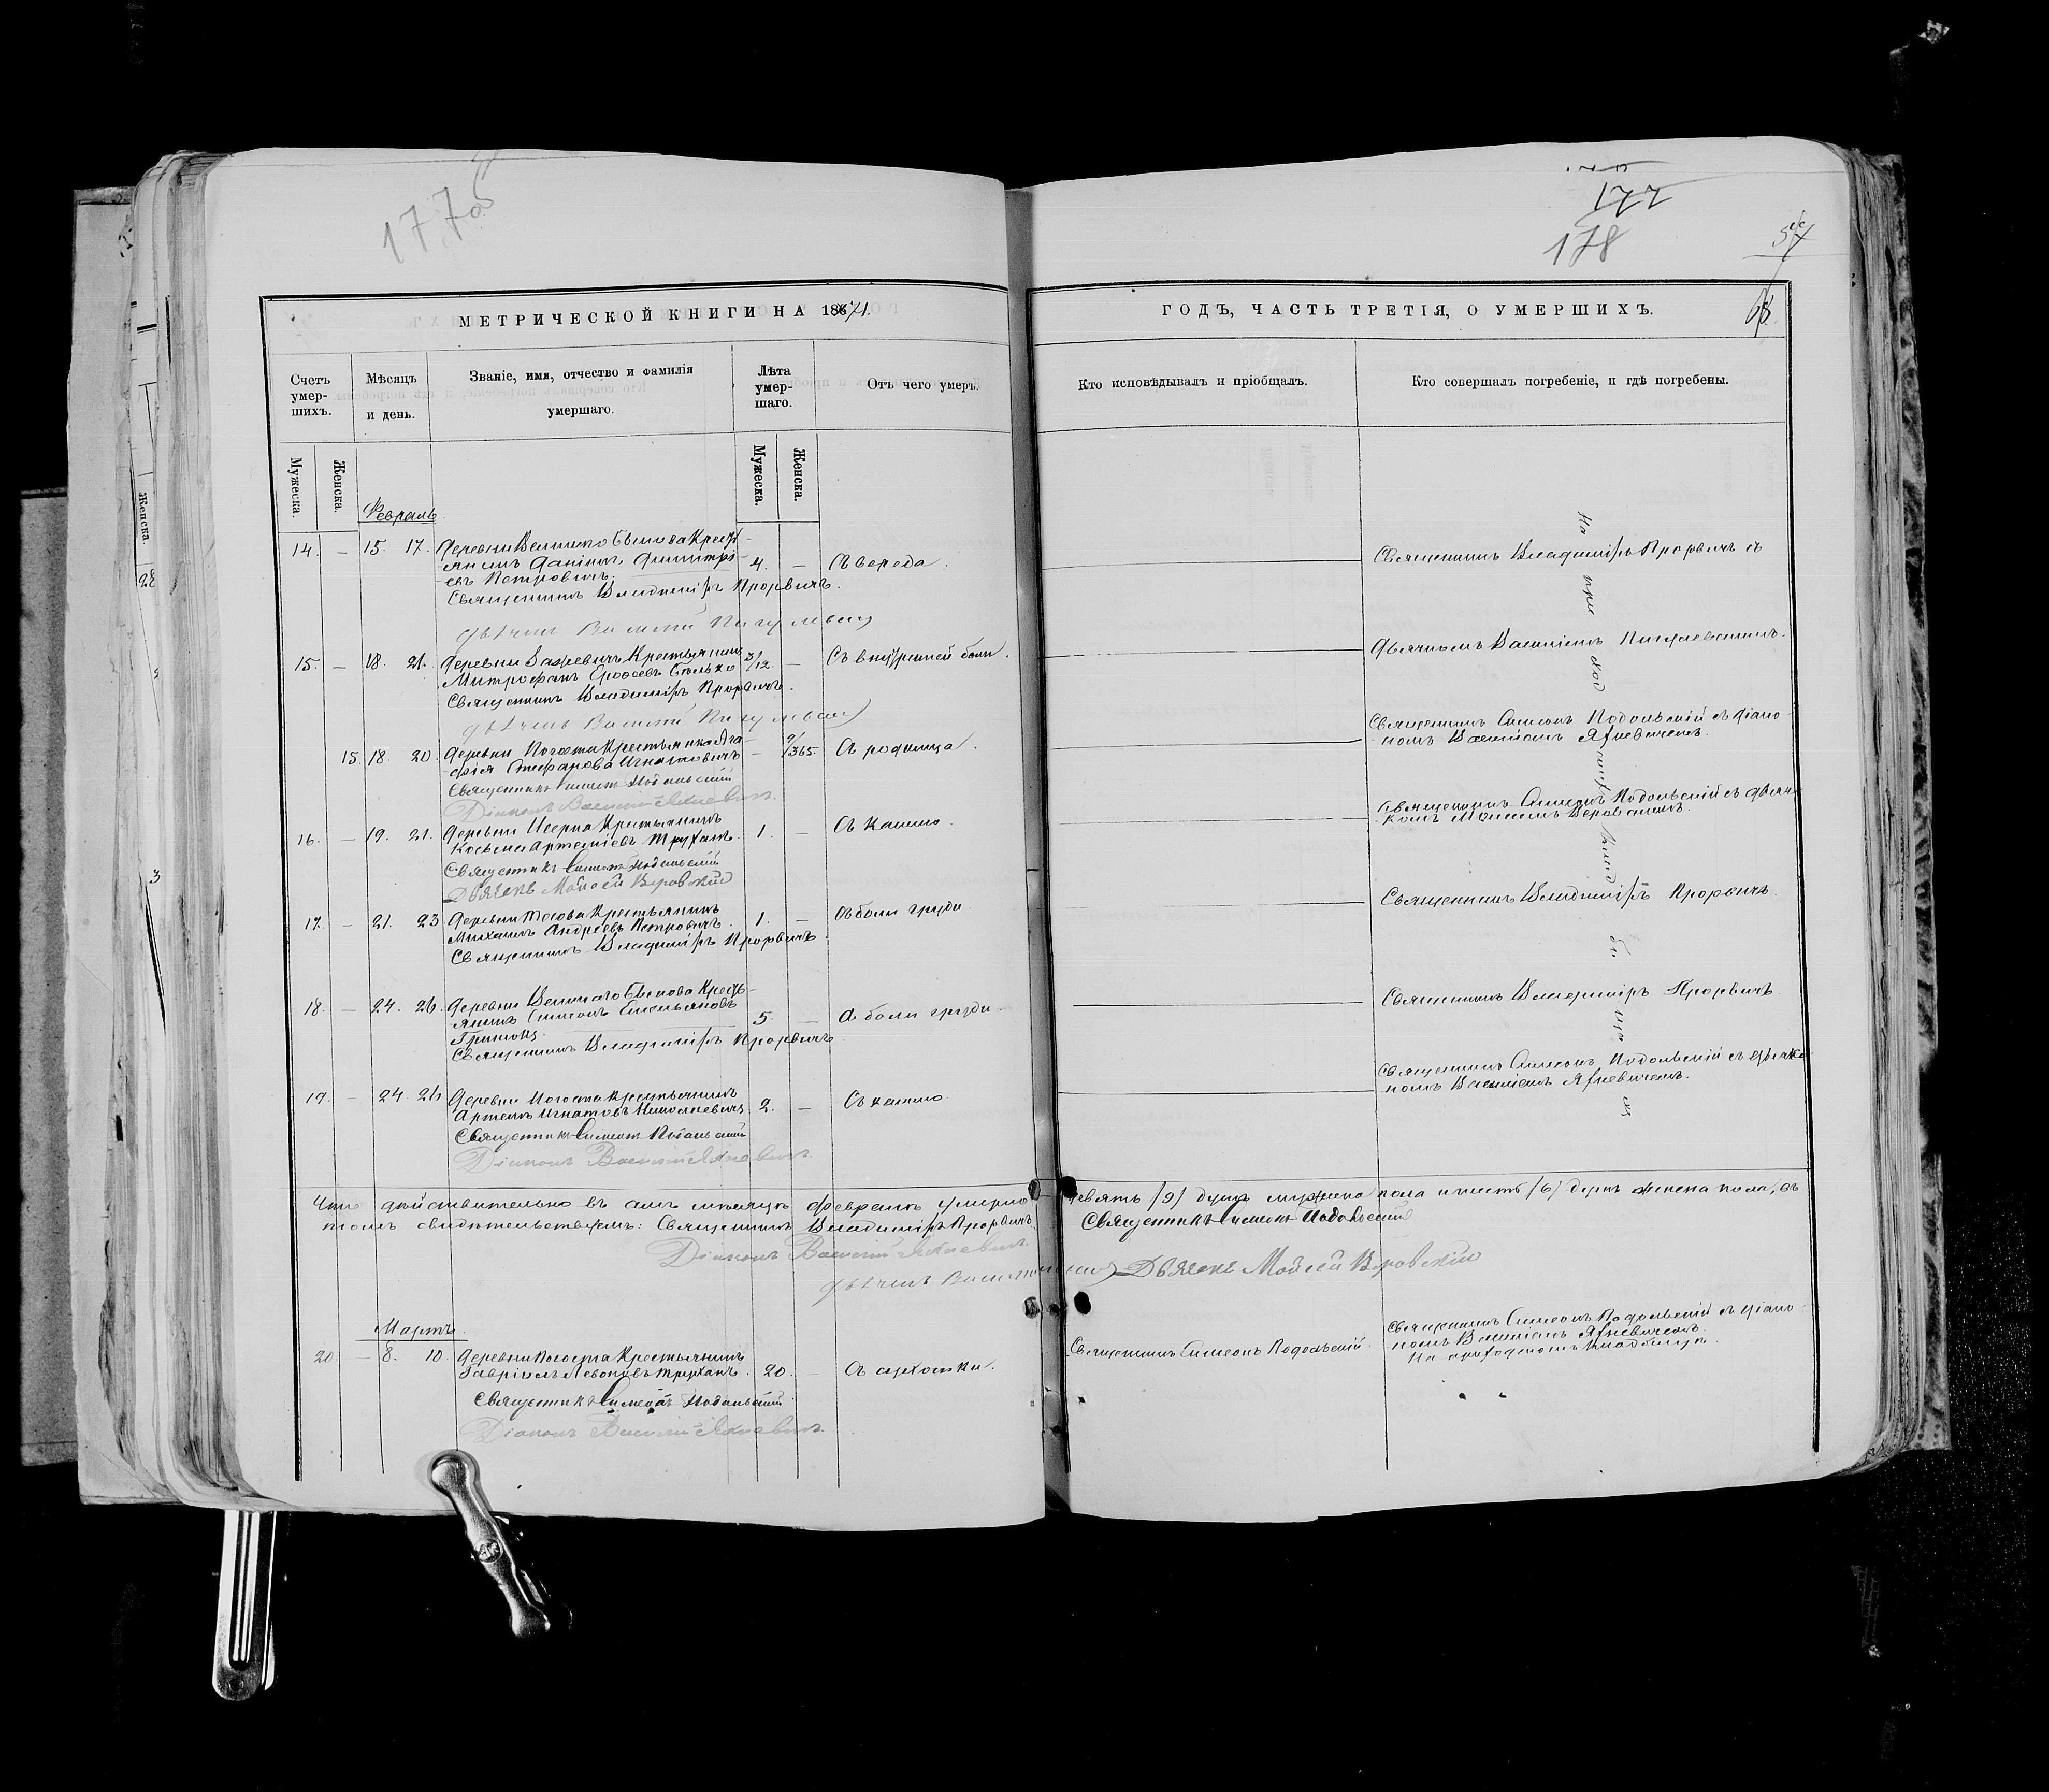 177 об
177
178
МЕТРИЧЕСКОЙ КНИГИ НА 1871.
ГОДЪ, ЧАСТЬ ТРЕТІЯ, О УМЕРШИХЪ.
Счетъ умер-шихъ.
Мѣсяцъ и день.
Званіе, имя, отчество и фамилія умершаго.
Лѣта умер-шаго.
Отъ чего умеръ.
Кто исповѣдывалъ и пріобщалъ.
Кто совершалъ погребеніе, и гдѣ погребены.
Мужеска.
Женска.
Мужеска.
Женска.
Февраль
14. — 15. 17. Деревни Великаго Быкова Кресть-
янинъ Даніилъ Димитрі-
евъ Петровичъ. 4. — Съ вереда.
Священникъ Владиміръ Прорвичъ.
Священникъ Владиміръ Прорвичъ съ
Дьячекъ Василій
Дьячкомъ Василіемъ
15. — 18. 21. Деревни Крестьянинъ
Митрофанъ 3/12. — Съ внутренней боли.
Священникъ Владиміръ Прорвичъ.
Дьячекъ Василій
15. 18. 20. Деревни Погоста Крестьянка Ага-
фія Стефанова Игнатовичъ — 2/365. Съ родимца.
Священникъ Симеонъ Подольскій
Діаконъ Василій Яхневичъ
Священникъ Симеонъ Подольскій съ діако-
номъ Василіемъ Яхневичемъ.
16. — 19. 21. Деревни Крестьянинъ
Косьма Артеміевъ Труханъ. 1. — Съ кашлю.
Священникъ Симеонъ Подольскій
Дьячекъ Мойсей Вѣровскій
Священникъ Симеонъ Подольскій съ дьяч-
комъ Моисеемъ
17. — 21. 23. Деревни Крестьянинъ
Михаилъ Андреевъ Петровичъ. 1. — Съ боли груди.
Священникъ Владиміръ Прорвичъ.
Священникъ Владиміръ Прорвичъ.
18. — 24. 26. Деревни Великаго Быкова Кресть-
янинъ Симеонъ Емельяновъ
5. — Съ боли груди.
Священникъ Владиміръ Прорвичъ.
Священникъ Владиміръ Прорвичъ.
19. — 24. 26. Деревни Погоста Крестьянинъ
Артемъ Игнатовъ 2. — Съ кашлю.
Священникъ Симеонъ Подольскій
Діаконъ Василій Яхневичъ.
Священникъ Симеонъ Подольскій съ
номъ Василіемъ Яхневичемъ.
На приходскомъ кладбищѣ
Что дѣйствительно въ семъ мѣсяцѣ Февралѣ умерло девять /9/ душъ мужеска пола и шесть /6/ душъ женска пола, въ
томъ свидѣтельствуемъ: Священникъ Владиміръ Прорвичъ. Священникъ Симеонъ Подольскій
Діаконъ Василій Яхневичъ.
Дьячекъ Василій
Дьячекъ Мойсей Вѣровскій
Мартъ.
20. — 8. 10. Деревни Погоста Крестьянинъ
Гавріилъ Леоновъ Труханъ. 20. — Съ сухотки.
Священникъ Симеонъ Подольскій
Діаконъ Василій Яхневичъ.
Священникъ Симеонъ Подольскій.
Священникъ Симеонъ Подольскій съ діако-
номъ Василіемъ Яхневичемъ.
На приходскомъ кладбищѣ.